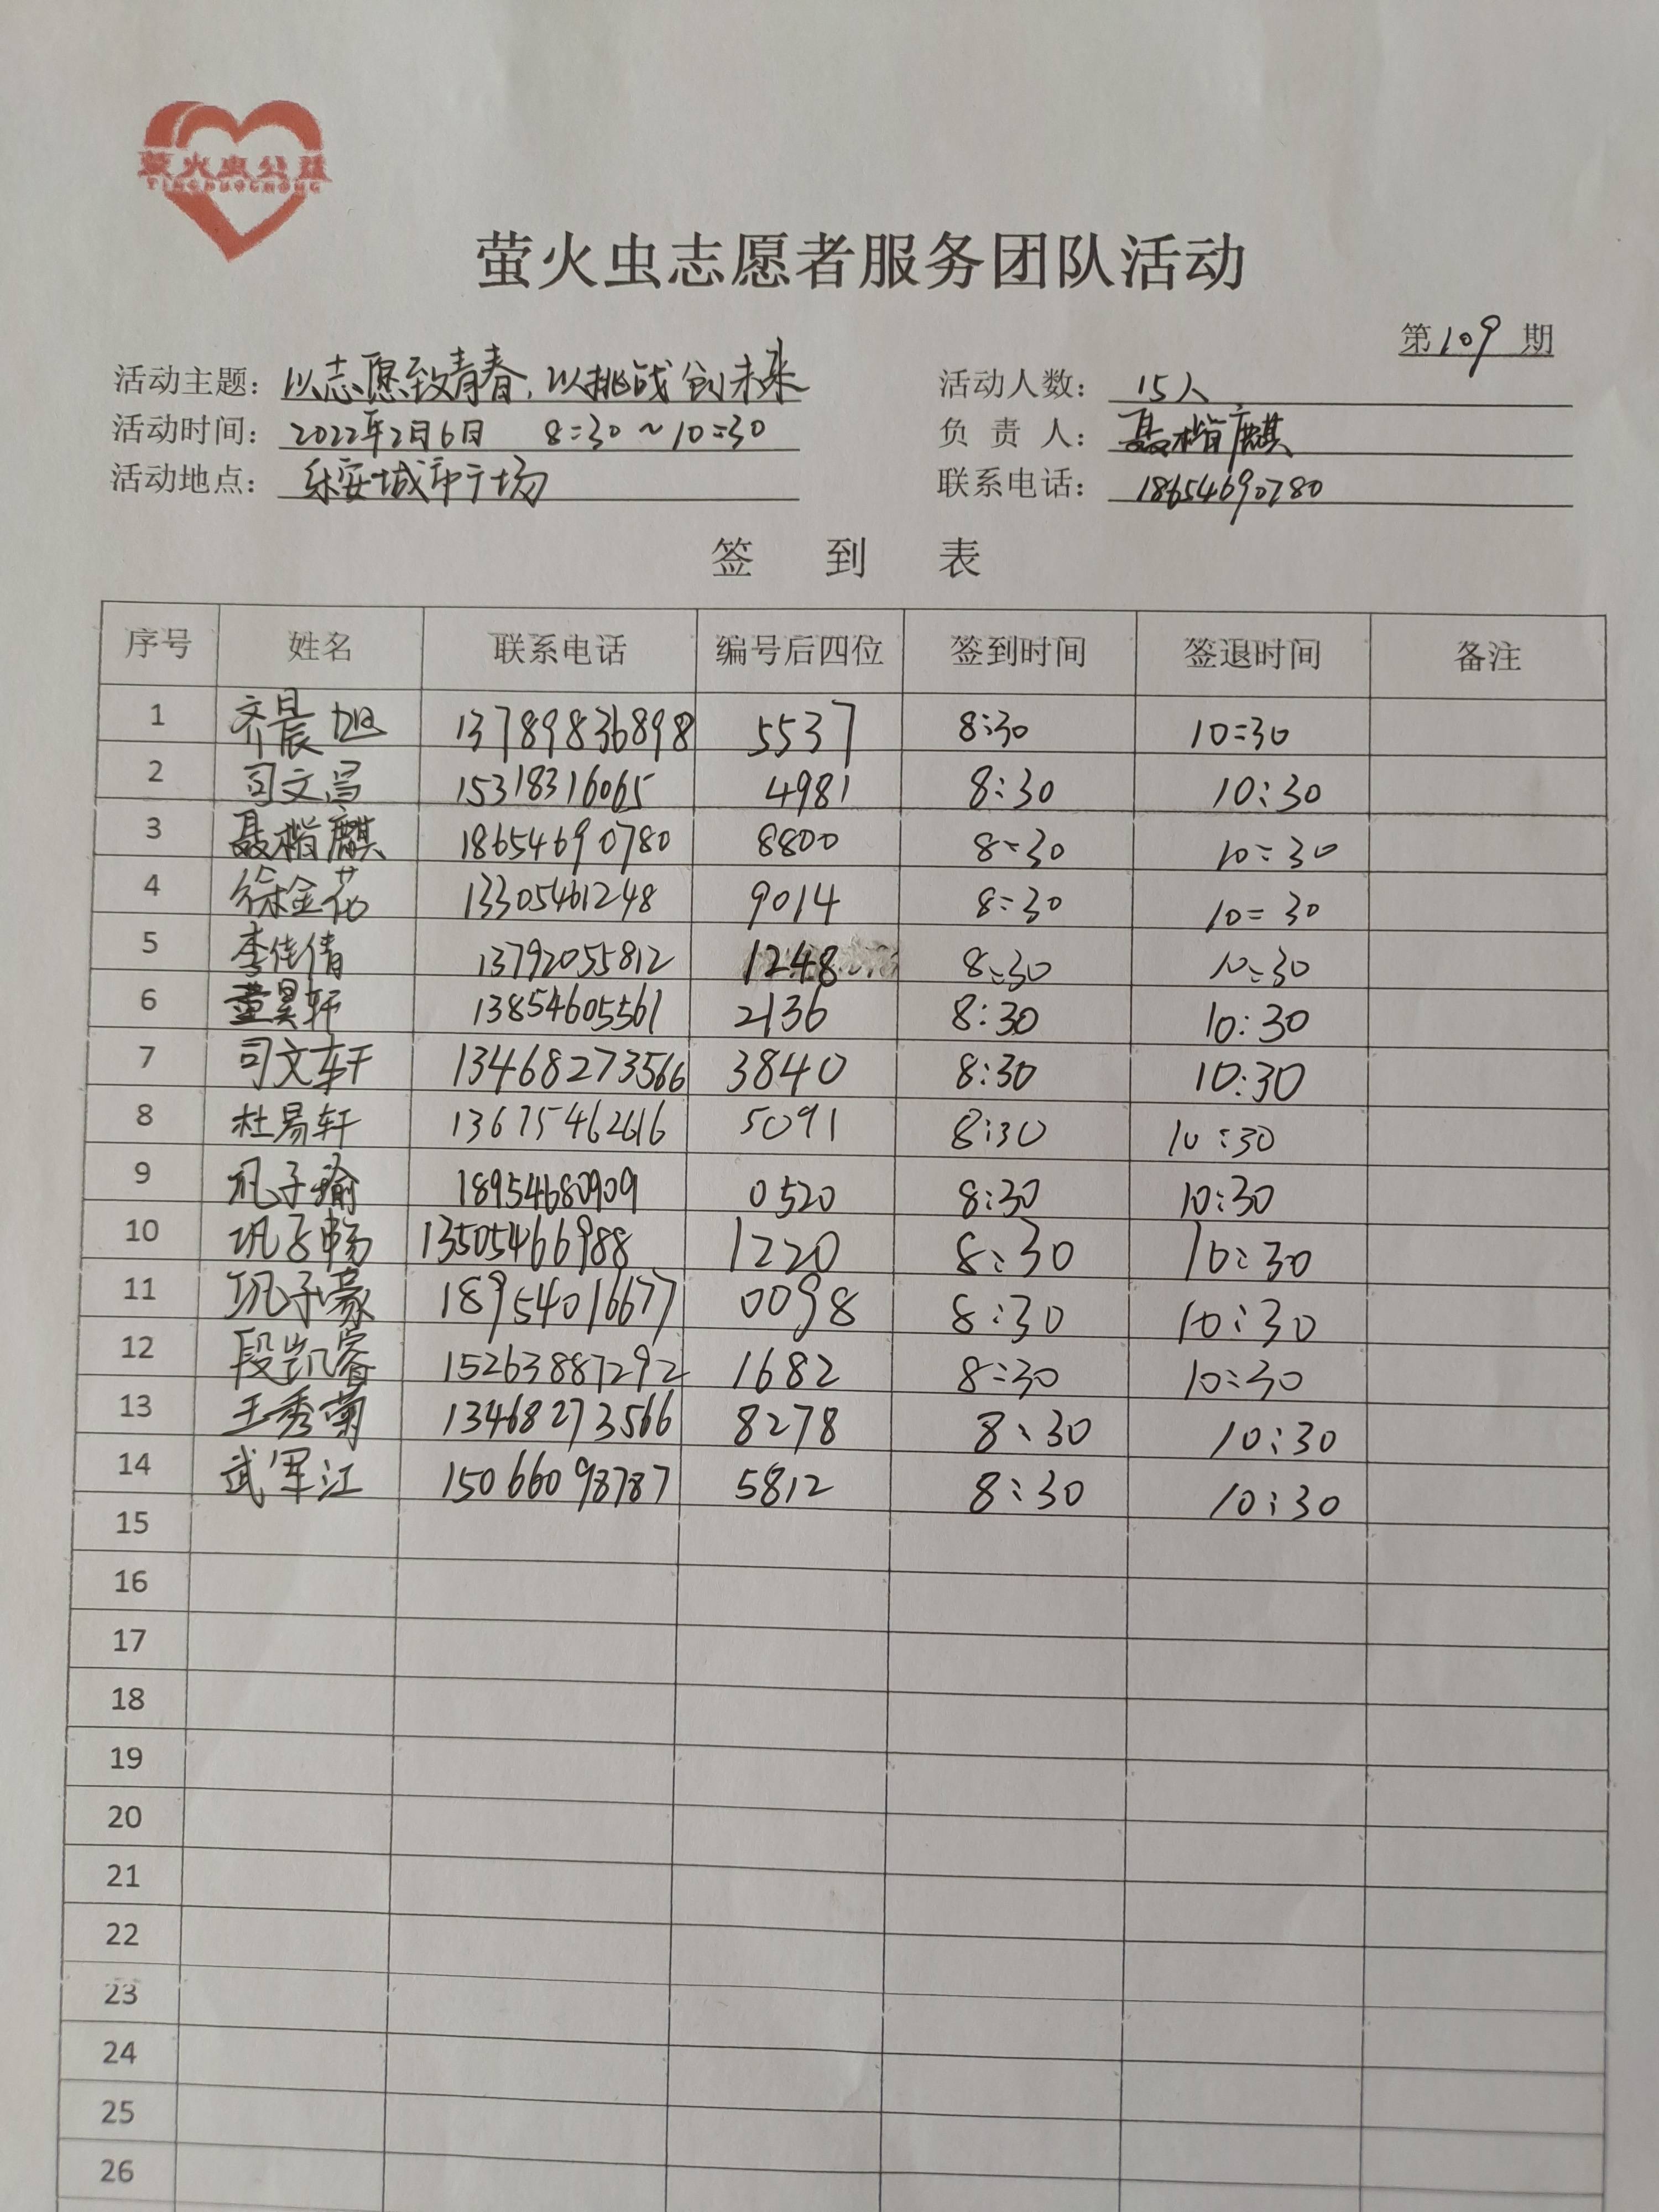 萤火虫公益
YINGHUOCHONG
萤火虫志愿者服务团队活动
第109期
活动主题：以志愿致青春，以挑战创未来 活动人数：15人
活动时间：2022年2月6日 8:30~10:30 负责人：聂楷麒
活动地点：乐安城市广场 联系电话：18654690780
签到表
序号 姓名 联系电话 编号后四位 签到时间 签退时间 备注
1 齐晨旭 13789836898 5537 8:30 10:30
2 司文昌 15318316065 4981 8:30 10:30
3 聂楷麒 18654690780 8800 8:30 10:30
4 徐金花 13305461248 9014 8:30 10:30
5 李佳倩 13792055812 1248 8:30 10:30
6 董昊轩 13854605561 2136 8:30 10:30
7 司文轩 13468273566 3840 8:30 10:30
8 杜易轩 13675462616 5091 8:30 10:30
9 巩子瑜 18954680909 0520 8:30 10:30
10 巩子畅 13505466988 1220 8:30 10:30
11 巩子豪 18954016677 0098 8:30 10:30
12 段凯睿 15263887292 1682 8:30 10:30
13 王秀菊 13468273566 8278 8:30 10:30
14 武军江 15066098787 5812 8:30 10:30
15
16
17
18
19
20
21
22
23
24
25
26